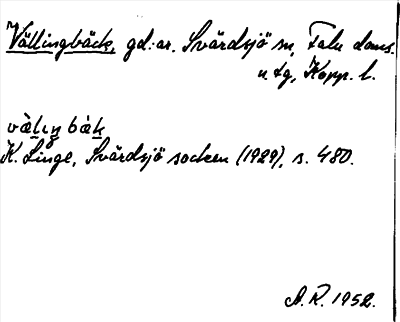 Vällingbäck, gd:ar. Svärdsjö sn, Falu doms.
u tg, Kopp. l.
vàlıŋ bàk
K. Linge, Svärdsjö socken (1929), s. 480.
A. R. 1952.